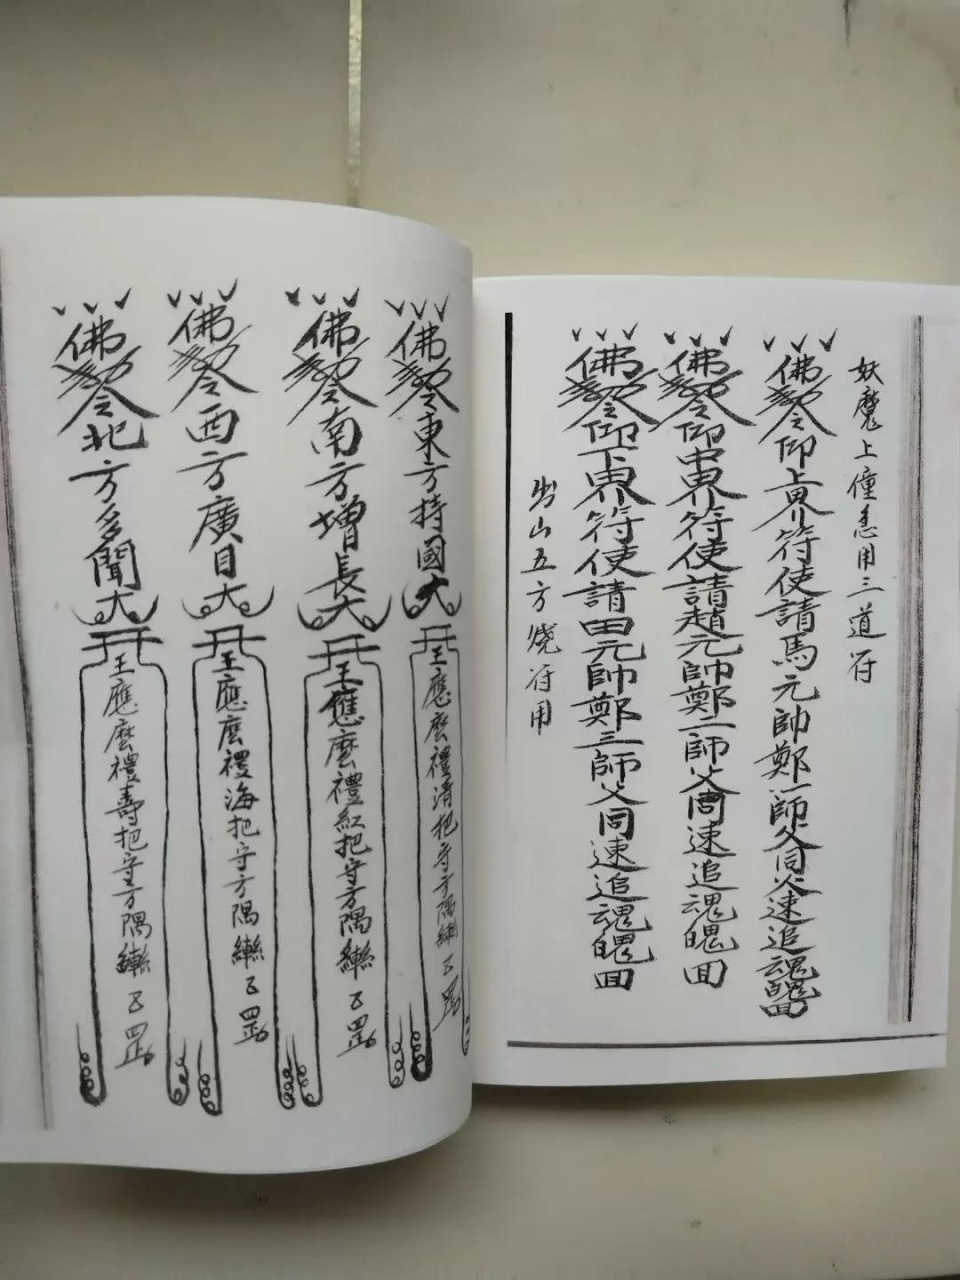 妖魔上僮急用三道符
佛勅令仰上界符使請馬元帥鄭一師父同火速追魂魄回
佛勅令仰中界符使請趙元帥鄭二師父同速追魂魄回
佛勅令仰下界符使請田元帥鄭三師父同速追魂魄回
出山五方燒符用
佛勅令東方持國大王應麽禮清把守方隅
佛勅令南方增長大王應麽禮紅把守方隅
佛勅令西方廣目大王應麽禮海把守方隅
佛勅令北方多聞大王應麽禮壽把守方隅